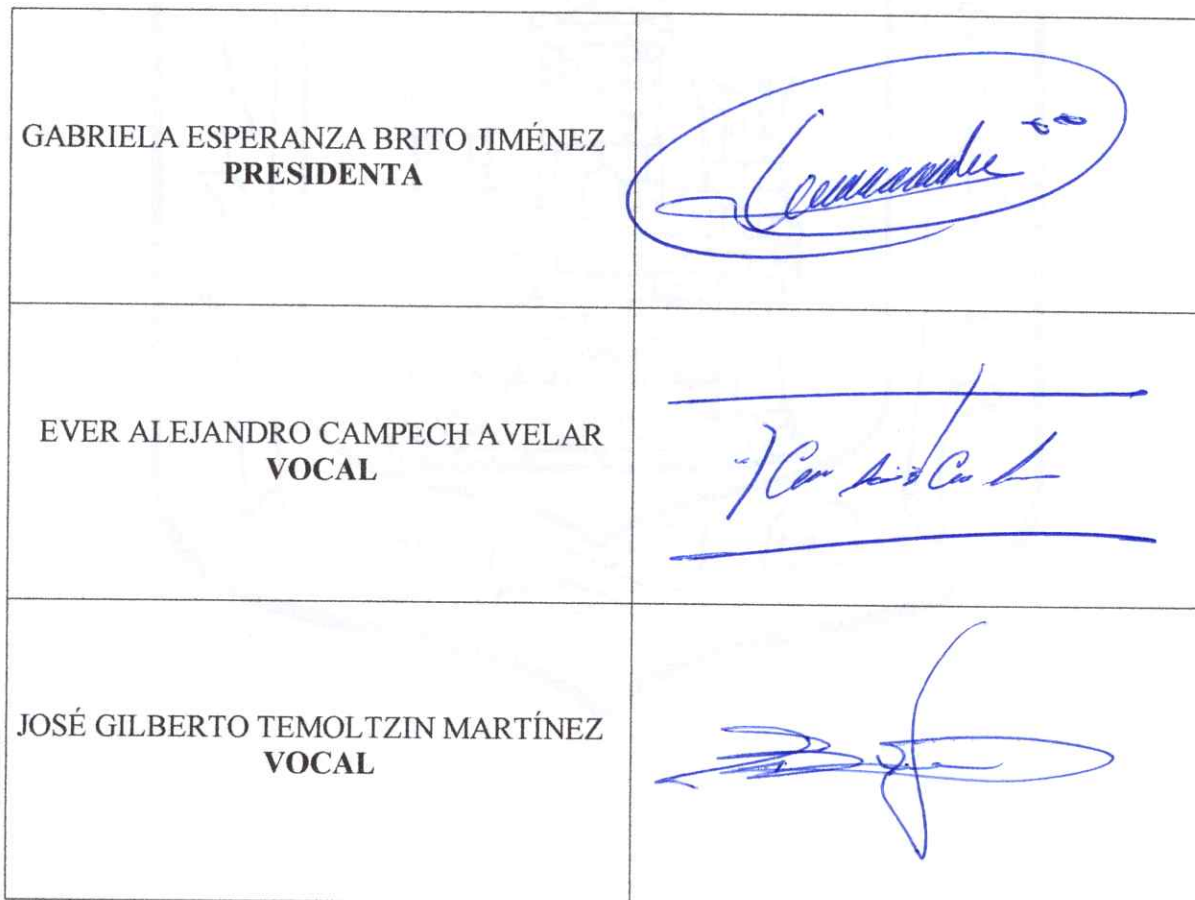 GABRIELA ESPERANZA BRITO JIMÉNEZ
PRESIDENTA
EVER ALEJANDRO CAMPECH AVELAR
VOCAL
JOSÉ GILBERTO TEMOLTZIN MARTÍNEZ
VOCAL